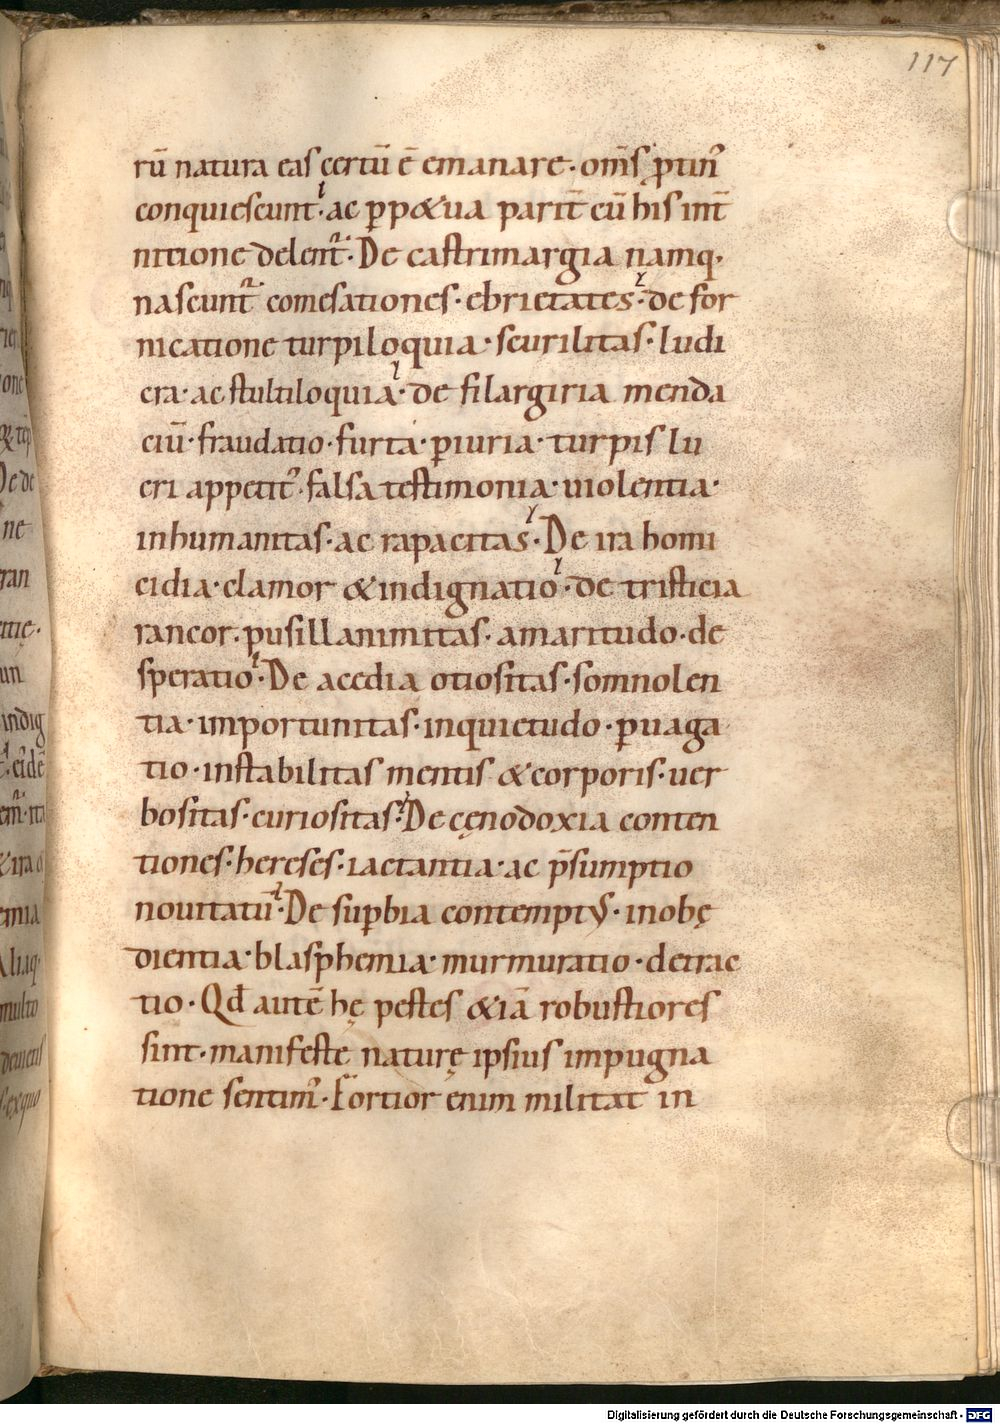 117
rū natura eas certū ē emanare · om̄s ꝓtin᷒
conquiescunt · ac ꝑp&ua parit̄ cū his int̄
nitione delent᷒ · De castrimargia namq·
nascunt᷒ comesationes · ebrietates · de for
nicatione turpiloquia · scurilitas · ludi
cra · ac stultiloquia · de filargiria menda
ciū · fraudatio · furta · ꝑiuria · turpis lu
cri appetit᷒ · falsa testimonia · uiolentia ·
inhumanitas · ac rapacitas · De ira homi
cidia · clamor & indignatio · de tristicia
rancor · pusillanimitas · amaritudo · de
speratio · De acedia otiositas · somnolen
tia · importunitas · inquietudo · ꝑuaga
tio · instabilitas mentis & corporis · uer
bositas · curiositas · De cęnodoxia conten
tiones · hereses · iactantia · ac p̄sumptio
nouitatū · De suꝑbia contemptus · inobę
dientia · blasphemia · murmuratio · detrac
tio · Qd̄ autē hę pestes &iā robustiores
sint · manifeste naturę ipsius impugna
tione sentim᷒ · Fortior enim militat in
Digitalisierung gefördert durch die Deutsche Forschungsgemeinschaft - DFG